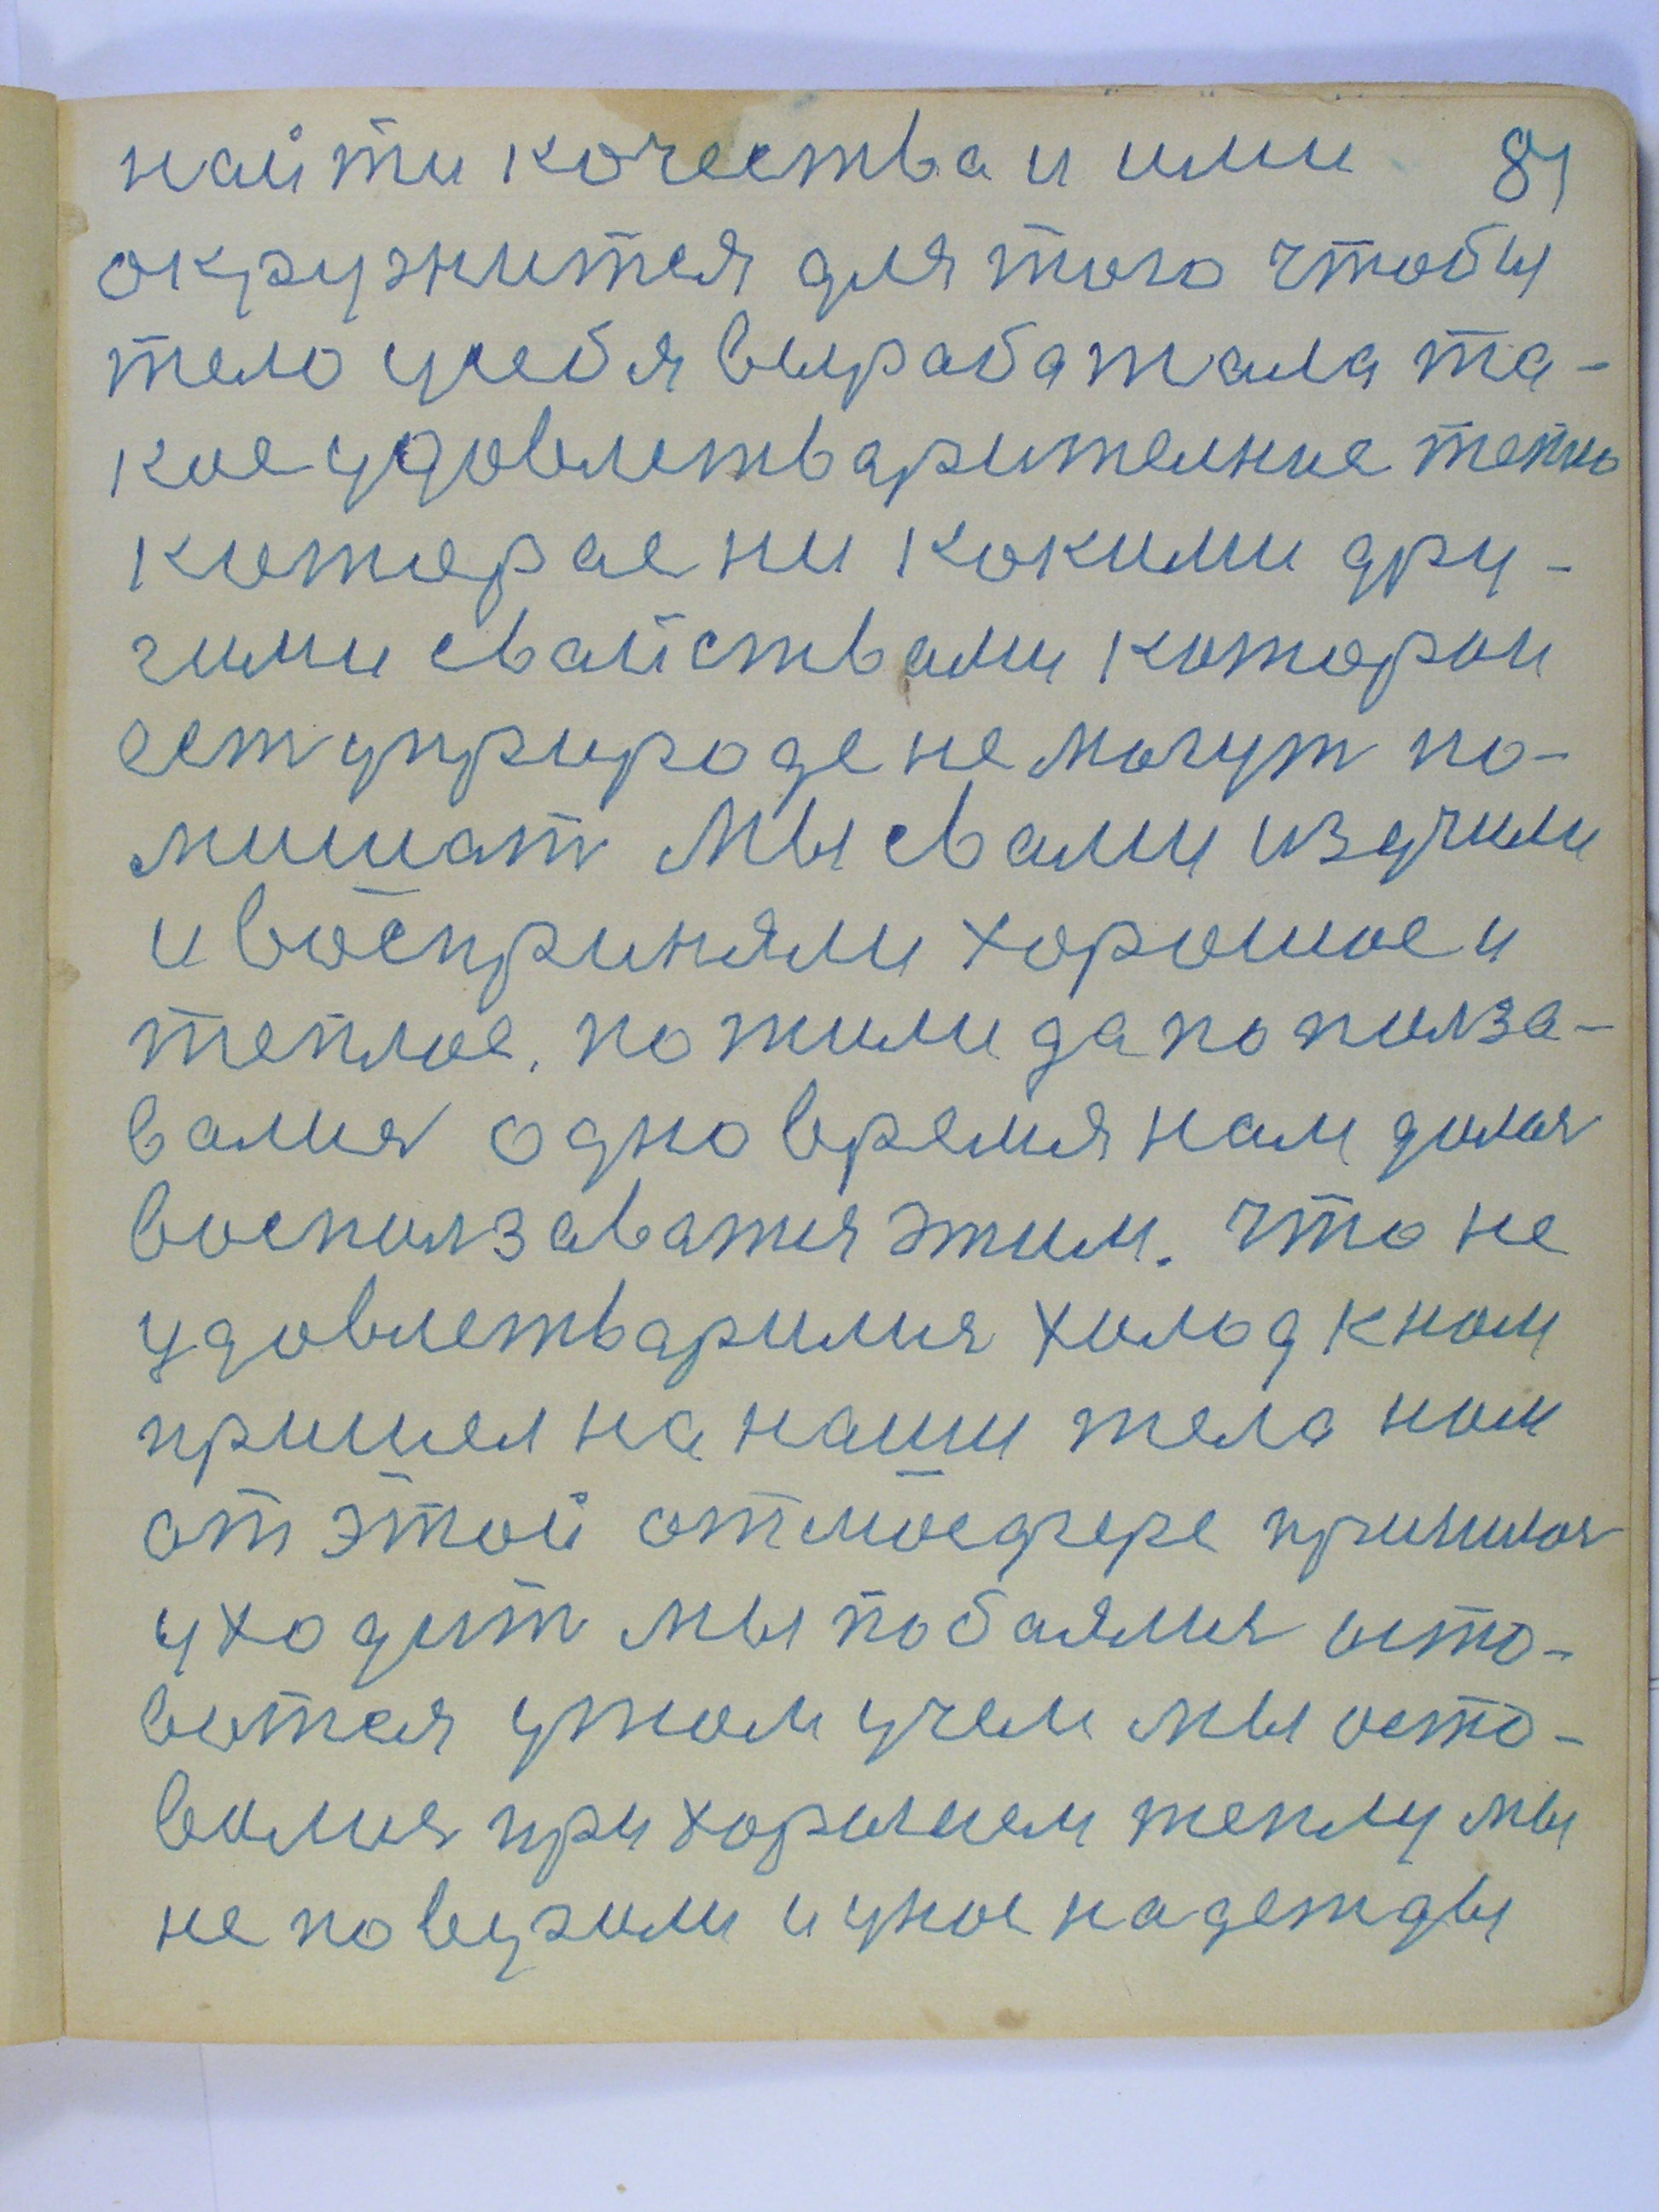 найти кочества и ими 81
окружится для того чтобы
тело усебя вырабатала та-
кое удовлетварителние тепло
которае ни кокими дру-
гими свайствами которои
ест уприроде не могут по-
мишат Мы свами изучили
и восприняли хорошое и
теплое. пожили да попилза-
вались одно время нам далося
воспилзаватся этим. что не
удовлетварился холод кнам
пришел на наши тела нам
от этой отмосфере пришлося
уходит мы побаялися оста-
вится утом учем мы оста-
вилися при хорошем теплу мы
не поверили и уное надежды